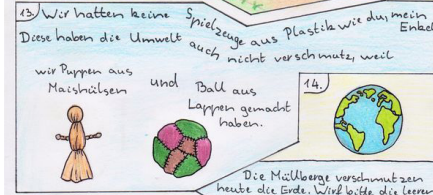 13. Wir hatten keine Spielzeuge aus Plastik wie du, mein Enkel
Diese haben die Umwelt auch nicht verschmutz, weil
wir Puppen aus
Maishülsen
und
Ball aus
Lappen gemacht
haben.
14.
Die Müllberge verschmutzen
heute die Erde. Wirf bitte die leeren